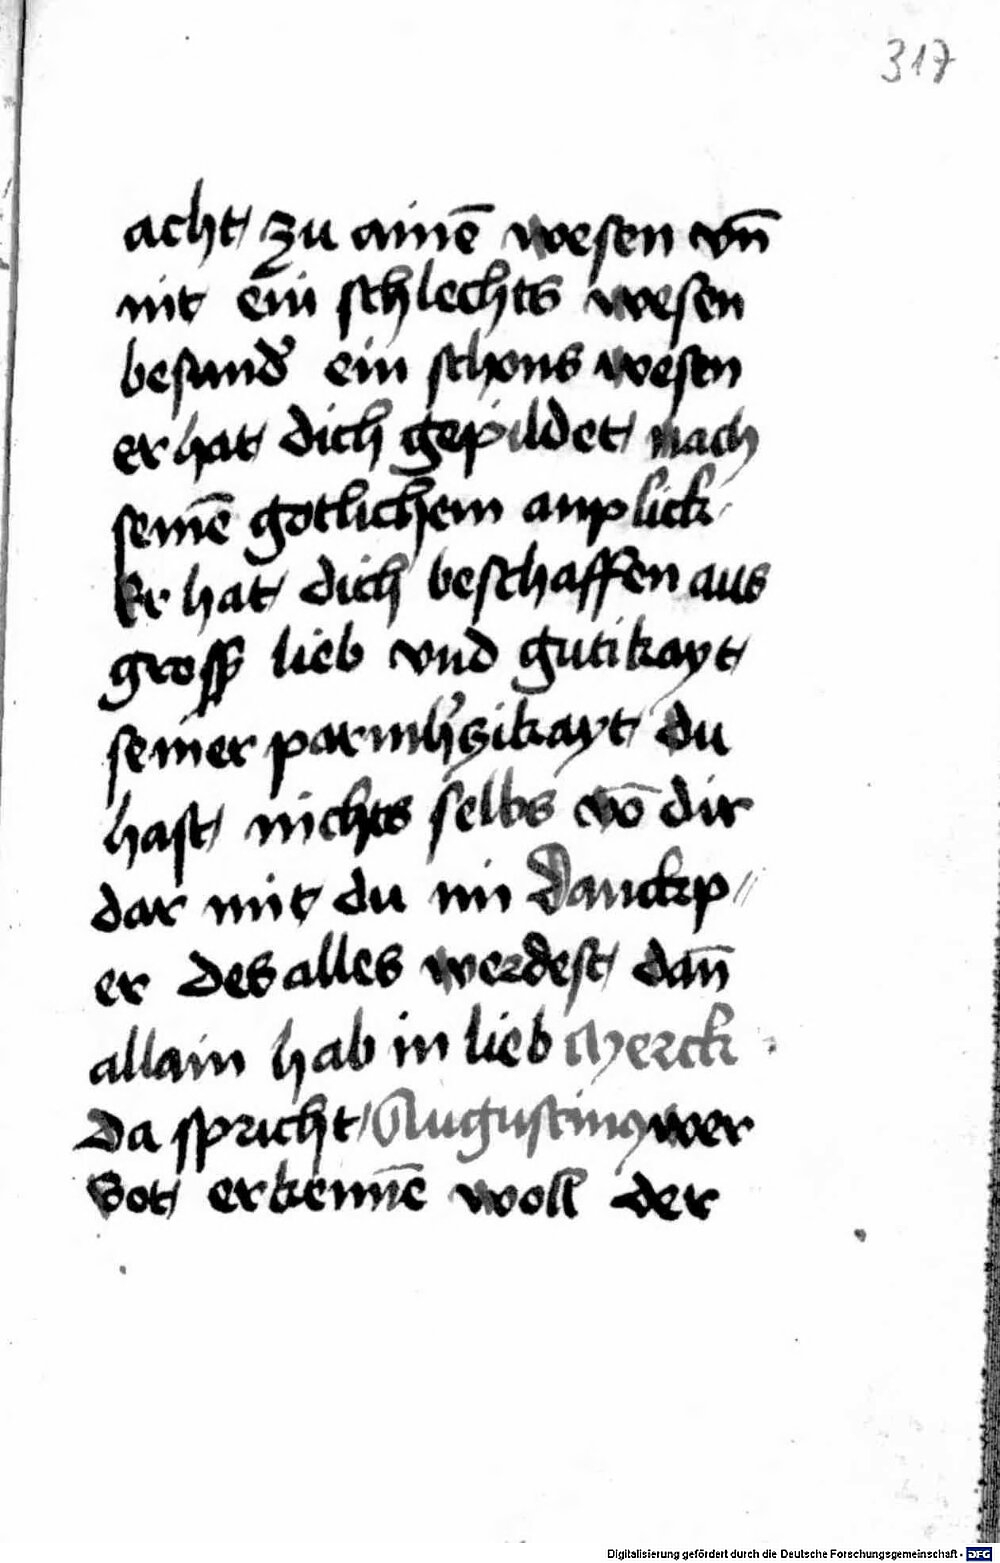 317
acht zu ainē wesen vn̄
nit ein schlechts wesen
besund᷑ ein schons wesen
er hat dich gepildet nach
seinē gotlichem anplick
Er hat dich beschaffen aus
gross lieb vnd gutikayt
seiner parmh᷑zikayt du
hast nichts selbs vō dir
dar mit du im danckp//
er des alles werdest dan̄
allain hab in lieb Merck
Da spricht Augustinꝰ wer
Got erkennē woll der
Digitalisierung gefördert durch die Deutsche Forschungsgemeinschaft - DFG